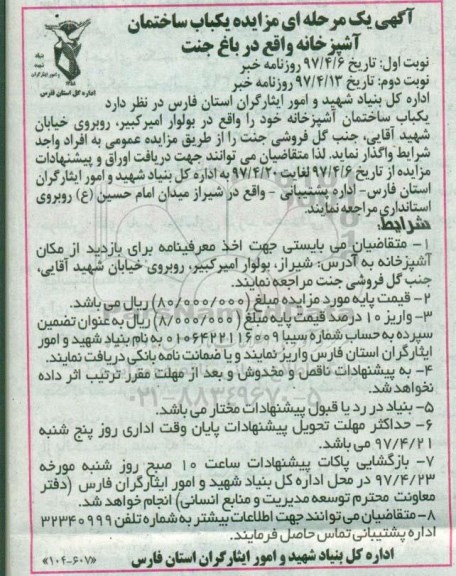 آگهی یک مرحله ای مزایده یکباب ساختمان
آشپزخانه واقع در باغ جنت
نوبت اول: تاریخ ۹۷/۴/۶ روزنامه خبر
نوبت دوم: تاریخ ۹۷/۴/۱۳ روزنامه خبر
اداره کل استان فارس
اداره کل بنیاد شهید و امور ایثارگران استان فارس در نظر دارد
یکباب ساختمان آشپزخانه خود را واقع در بولوار امیرکبیر، روبروی خیابان
شهید آقایی، جنب گل فروشی جنت را از طریق مزایده عمومی به افراد واجد
شرایط واگذار نماید. لذا متقاضیان می توانند جهت دریافت اوراق و پیشنهادات
مزایده از تاریخ ۹۷/۴/۶ لغایت ۹۷/۴/۲۰ به اداره کل بنیاد شهید و امور ایثارگران
استان فارس- اداره پشتیبانی - واقع در شیراز میدان امام حسین (ع) روبروی
استانداری مراجعه نمایند.
شرایط
۱- متقاضیان می بایستی جهت اخذ معرفینامه برای بازدید از مکان
آشپزخانه به آدرس: شیراز، بولوار امیرکبیر، روبروی خیابان شهید آقایی،
جنب گل فروشی جنت مراجعه نمایند.
۲- قیمت پایه مورد مزایده مبلغ (۸۰/۰۰۰/۰۰۰) ریال می باشد.
۳- واریز ۱۰ درصد قیمت پایه مبلغ (۸/۰۰۰/۰۰۰) ریال به عنوان تضمین
سپرده به حساب شماره سیبا ۰۱۰۶۴۲۲۱۱۶۰۰۹ به نام بنیاد شهید و امور
ایثارگران استان فارس واریز نمایند و یا ضمانت نامه بانکی دریافت نمایند.
۴- به پیشنهادات ناقص و مخدوش و بعد از مهلت مقرر ترتیب اثر داده
نخواهد شد.
۵- بنیاد در رد یا قبول پیشنهادات مختار می باشد.
۶- حداکثر مهلت تحویل پیشنهادات پایان وقت اداری روز پنج شنبه
۹۷/۴/۲۱ می باشد.
۷- بازگشایی پاکات پیشنهادات ساعت ۱۰ صبح روز شنبه مورخه
۹۷/۴/۲۳ در محل اداره کل بنیاد شهید و امور ایثارگران فارس (دفتر
معاونت محترم توسعه مدیریت و منابع انسانی) انجام خواهد شد.
۸- متقاضیان می توانند جهت اطلاعات بیشتر به شماره تلفن ۳۲۳۴۰۹۹۹
اداره پشتیبانی تماس حاصل فرمایند.
اداره کل بنیاد شهید و امور ایثارگران استان فارس
«۱۰۴-۶۰۷»
۰۲۱-۸۸۳۴۹۶۷۰-۵